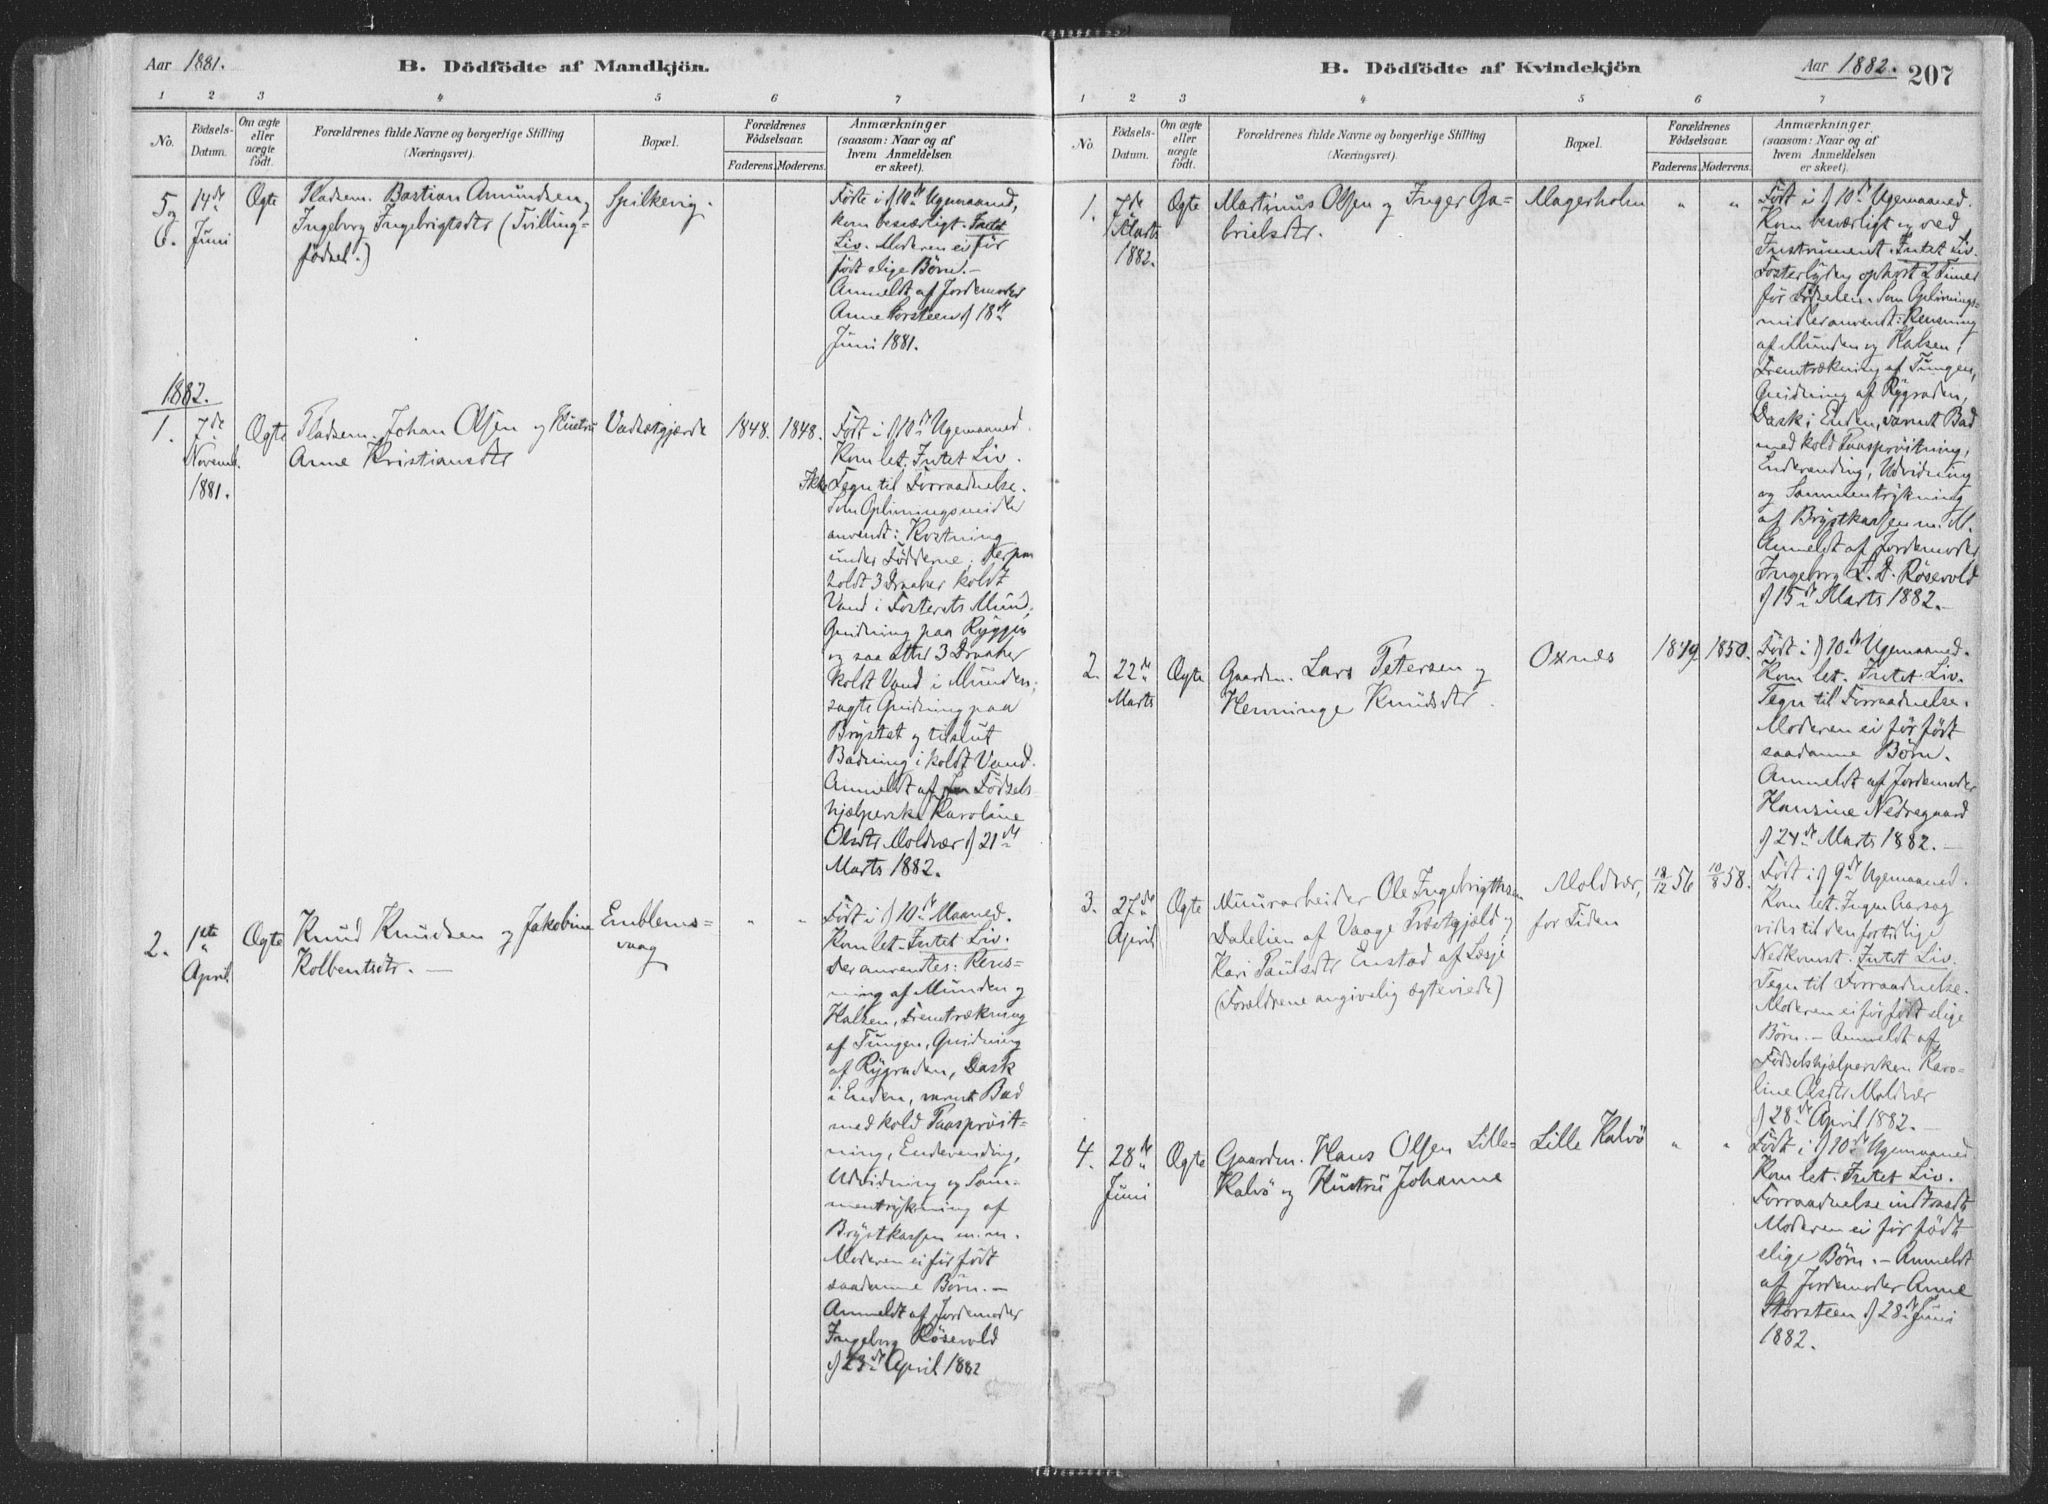 Aar 1881.
B. Dödfödte af Mandkjön.
1 2 3 4 5 6 7
No.
Födsels-
Datum.
Om ægte
eller
uægte
födt.
Forældrenes fulde Navne og borgerlige Stilling
(Næringsvei).
Bopæl.
Forældrenes
Födselsaar.
Faderens. Moderens.
Anmærkninger
(saasom: Naar og af
hvem Anmeldelsen
er skeet).
5 og
6.
14de
Juni
Ægte
Pladsm. Bastian Amundsen og
Ingeborg Ingebrigtsdtr (Tvilling=
födsel.)
Spilkevig.
Födte i d 10de Ugemaaned,
kom besværligt. Intet
Liv. Moderen ei för
födt slige Börn.—
Anmeldt af Jordemoder
Anne Storsteen d 18de
Juni 1881.
1882.
1.
7de
Novemb.
1881.
Ægte
Pladsm. Johan Olsen og Hustru
Anne Kristiansdtr
Vadsetgjærde
1848. 1848.
Födt i d 10de Ugemaaned.
Kom let. Intet Liv.
Ikke Tegn til Forraadnelse.
Som Oplivningsmidler
anvendt: Kostning
under Födderne; Derpaa
holdt 3 Draaber koldt
Vand i Fosterets Mund;
Gnidning paa Ryggen
og saa atter 3 Draaber
koldt Vand i Munden;
sagte Gnidning paa
Brystet og tilslut
Badning i koldt Vand.
Anmeldt af Födsels-
hjælperske Karoline
Olsdtr Moldvær d 21de
Marts 1882.
2.
1ste
April
Ægte
Knud Knudsen og Jakobine
Kolbentsdtr. —
Emblems=
vaag
" "
Födt i d 10de Maaned.
Kom let. Intet Liv.
Der anvendtes: Rens=
ning af Munden og
Halsen, Fremtrækning
af Tungen, Gnidning
af Rygraden, Dask
i Enden, varmt Bad
med kold Paaspröit=
ning, Endevending,
Udvidning og Sam=
mentrykning af
Brystkassen m.m.
Moderen ei för födt
saadanne Börn.—
Anmeldt af Jordemoder
Ingeborg Rösevold
d 23de April 1882
B. Dödfödte af Kvindekjön
Aar 1882.
207
1 2 3 4 5 6 7
No
Födsels-
Datum.
Om ægte
eller
uægte
födt.
Forældrenes fulde Navne og borgerlige Stilling
(Næringsvei).
Bopæl.
Forældrenes
Födselsaar.
Faderens. Moderens.
Anmærkninger
(saasom: Naar og af
hvem Anmeldelsen
er skeet).
1.
7de
Marts
1882.
Ægte
Martinus Olsen og Inger Ga=
brielsdtr.
Magerholm
" "
Födt i d 10de Ugemaaned.
Kom besværligt og ved
Instrument. Intet Liv.
Fosterlyden ophört 2 Timer
för Födselen. Som Oplivnings=
midler anvendt: Rensning
af Munden og Halsen,
Fremtrækning af Tungen,
Gnidning af Rygraden,
Dask i Enden, varmt Bad
med kold Paaspröitning,
Endevending, Udvidning
og Sammentrykning
af Brystkassen m. M.
Anmeldt af Jordemoder
Ingeborg L. D. Rösevold
d 15de Marts 1882.—
2.
22de
Marts
Ægte
Gaardm. Lars Petersen og
Henninge Knudsdtr.
Oxnes
1849 1850.
Födt i d 10de Ugemaaned.
Kom let. Intet Liv.
Tegn til Forraadnelse.
Moderen ei för födt
saadanne Börn.
Anmeldt af Jordemoder
Hansine Nedregaard
d 24de Marts 1882.—
3.
27de
April
Ægte
Muurarbeider Ole Ingebrigthsen
Dalelien af Vaage Præstgjæld og
Kari Paulsdtr Enstad af Lesje
(Forældrene angivelig ægteviede)
Moldvær,
for Tiden
18/12 56 10/8 58.
Födt i d 9de Ugemaaned.
Kom let. Ingen Aarsag
vides til den fortidlige
Nedkomst. Intet Liv.
Tegn til Forraadnelse.
Moderen ei för födt slige
Börn.— Anmeldt af
Födselshjælpersken Karo-
line Olsdtr Moldvær
d 28de April 1882.—
4.
28de
Juni
Ægte
Gaardm. Hans Olsen Lille=
Kalvö og Hustru Johanne
Lille Kalvö
" "
Födt i d 10de Ugemaaned.
Kom let. Intet Liv.
Forraadnelse indtraadt.
Moderen ei för födt
slige Börn.— Anmeldt
af Jordemoder Anne
Storsteen d 28de Juni
1882.